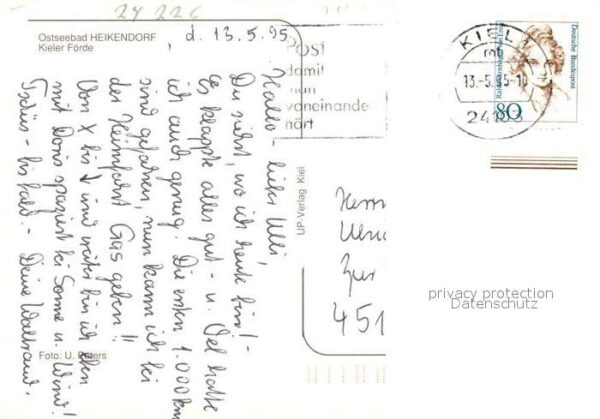 24 226
Ostseebad HEIKENDORF
Kieler Förde
, d. 13.5.95
Hallo - lieber Ulli,
Du siehst, wo ich heute bin! -
Es klappte alles gut - u. Oel hatte
ich auch genug. Die ersten 1.000 km
sind gefahren, nun kann ich bei
der Heimfahrt Gas geben!!
Von X bis und weiter bin ich eben
mit Doris spaziert bei Sonne u. Wind!
Tschüs - bis bald. - Deine Waltraud.
Foto: U. Peters
UP-Verlag Kiel
Post
damit
man
voneinande
hört
KIEL
mb
13.-5.95-10
24103
Deutsche Bundespost
80
Herrn
Ulric
Zur
451
privacy protection
Datenschutz